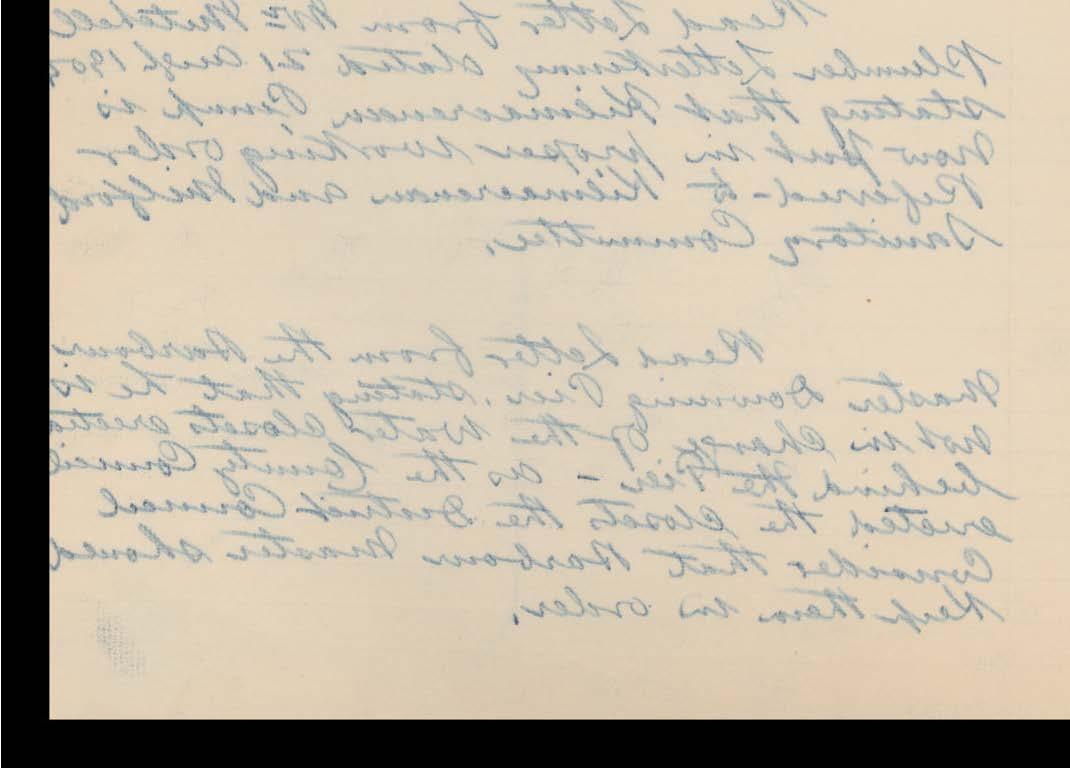 Read Letter from Wm Mitchell
Plumber Letterkenny dated 21 Augt
stating that Kilmacrenan Pump is
now put in proper working order
Referred to Kilmacrenan and Milford
Sanitary Committee.
Read Letter from the Harbour
Master Downing Pier. stating that he is
not in charge of the Water Closets erected
behind the Pier - as the County Council
erected the Closets the District Council
Consider that Harbour Master should
Keep them in order.